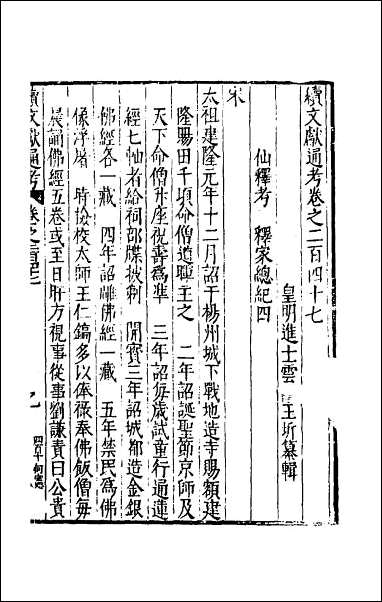 續文獻通考卷之二百四十七
皇明進士雲間王圻纂輯
仙釋考 釋家總紀四
宋
太祖建隆元年十二月詔于楊州城下戰地造寺賜額建
隆賜田千頃命僧道暉主之 二年詔誕聖節京師及
天下命僧升座祝壽為準 三年詔每歲試童行通蓮
經七軸者給祠部牒披剃 開寶三年詔城都造金銀
佛經各一藏 四年詔雕佛經一藏 五年禁民為佛
像浮屠 時檢校太師王仁鎬多以俸祿奉佛飯僧每
晨誦佛經五卷或至日旰方視事從事劉謙責曰公貴
續文獻通考 卷之二百四十七